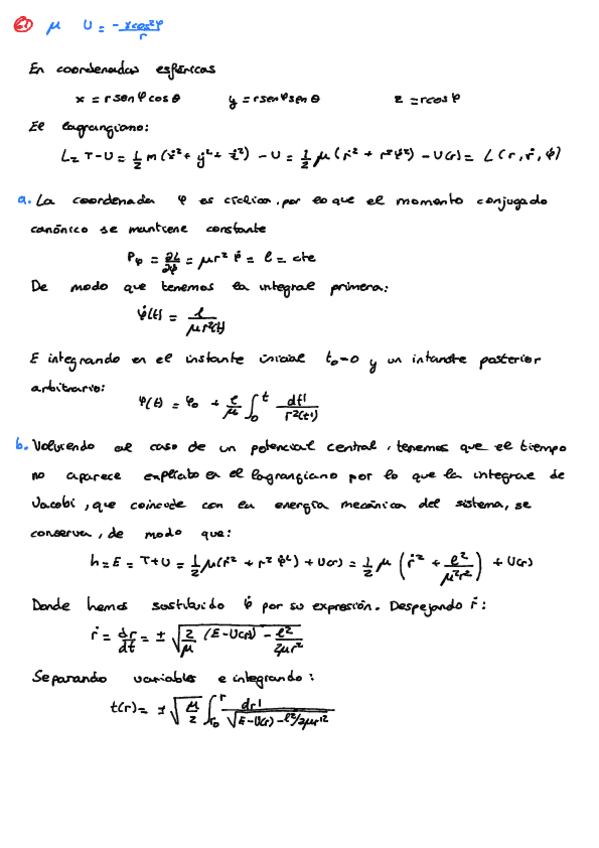 61 μ U = -κcos²φ / r
En coordenadas esféricas
x = r senφ cosθ y = r senφ senθ z = r cosφ
El lagrangiano:
L = T-U = 1/2 m (ẋ² + ẏ² + ż²) - U = 1/2 μ (ṙ² + r²φ̇²) - U(r) = L (r, ṙ, φ̇)
a. La coordenada φ es cíclica, por lo que el momento conjugado
canónico se mantiene constante
Pφ = ∂L/∂φ̇ = μr² φ̇ = ℓ = cte
De modo que tenemos la integral primera:
φ̇(t) = ℓ / μr²(t)
E integrando en el instante inicial t₀=0 y un intante posterior
arbitrario:
φ(t) = φ₀ + ℓ/μ ∫₀ᵗ dt' / r²(t')
b. Volviendo al caso de un potencial central, tenemos que el tiempo
no aparece explícito en el lagrangiano por lo que la integral de
Jacobi, que coincide con la energía mecánica del sistema, se
conserva, de modo que:
h = E = T+U = 1/2 μ(ṙ² + r² φ̇²) + U(r) = 1/2 μ (ṙ² + ℓ²/μ²r²) + U(r)
Donde hemos sustituido φ̇ por su expresión. Despejando ṙ:
ṙ = dr/dt = ± √(2/μ (E-U(r)) - ℓ²/2μr²)
Separando variables e integrando:
t(r) = ± √(μ/2) ∫r₀ʳ dr' / √(E-U(r)-ℓ²/2μr'²)